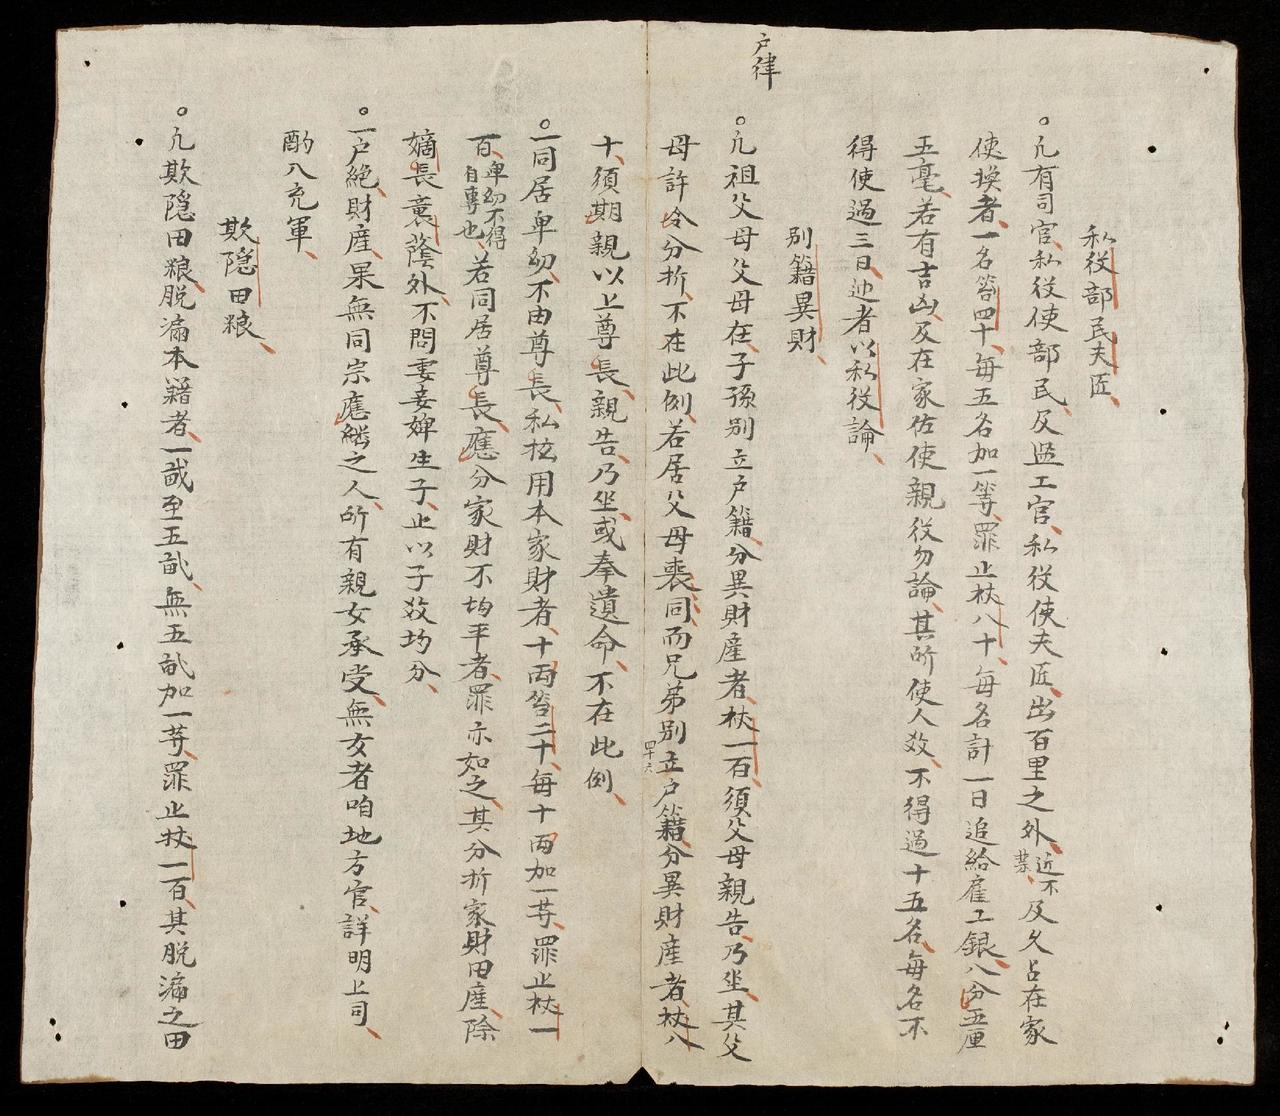 私役部民夫匠
凡有司官私役使部民及監工官私役使夫匠出百里之外近不禁及久占在家
使換者一名笞四十每五名加一等罪止杖八十每名計一日追給雇工銀八分五厘
五毫若有吉凶及在家佐使親役勿論其所使人数不得過十五名每名不
得使過三日過者以私役論
別籍異財
户律
凡祖父母父母在子孫別立户籍分異財產者杖一百須父母親告乃坐其父
母許令分析不在此例若居父母喪同而兄弟別立户籍分異財產者杖八
四十六
十須期親以上尊長親告乃坐或奉遺命不在此例
一同居卑幼不由尊長私擅用本家財者十両笞二十每十両加一等罪止杖一
百卑幼不得自專也若同居尊長應分家財不均平者罪亦如之其分析家財田産除
嫡長襲蔭外不問妻妾婢生子止以子数均分
一户絶財産果無同宗應継之人所有親女承受無女者咱地方官詳明上司
酌入充軍
欺隠田粮
凡欺隠田粮脱漏本籍者一畝至五畝無五畝加一等罪止杖一百其脱漏之田